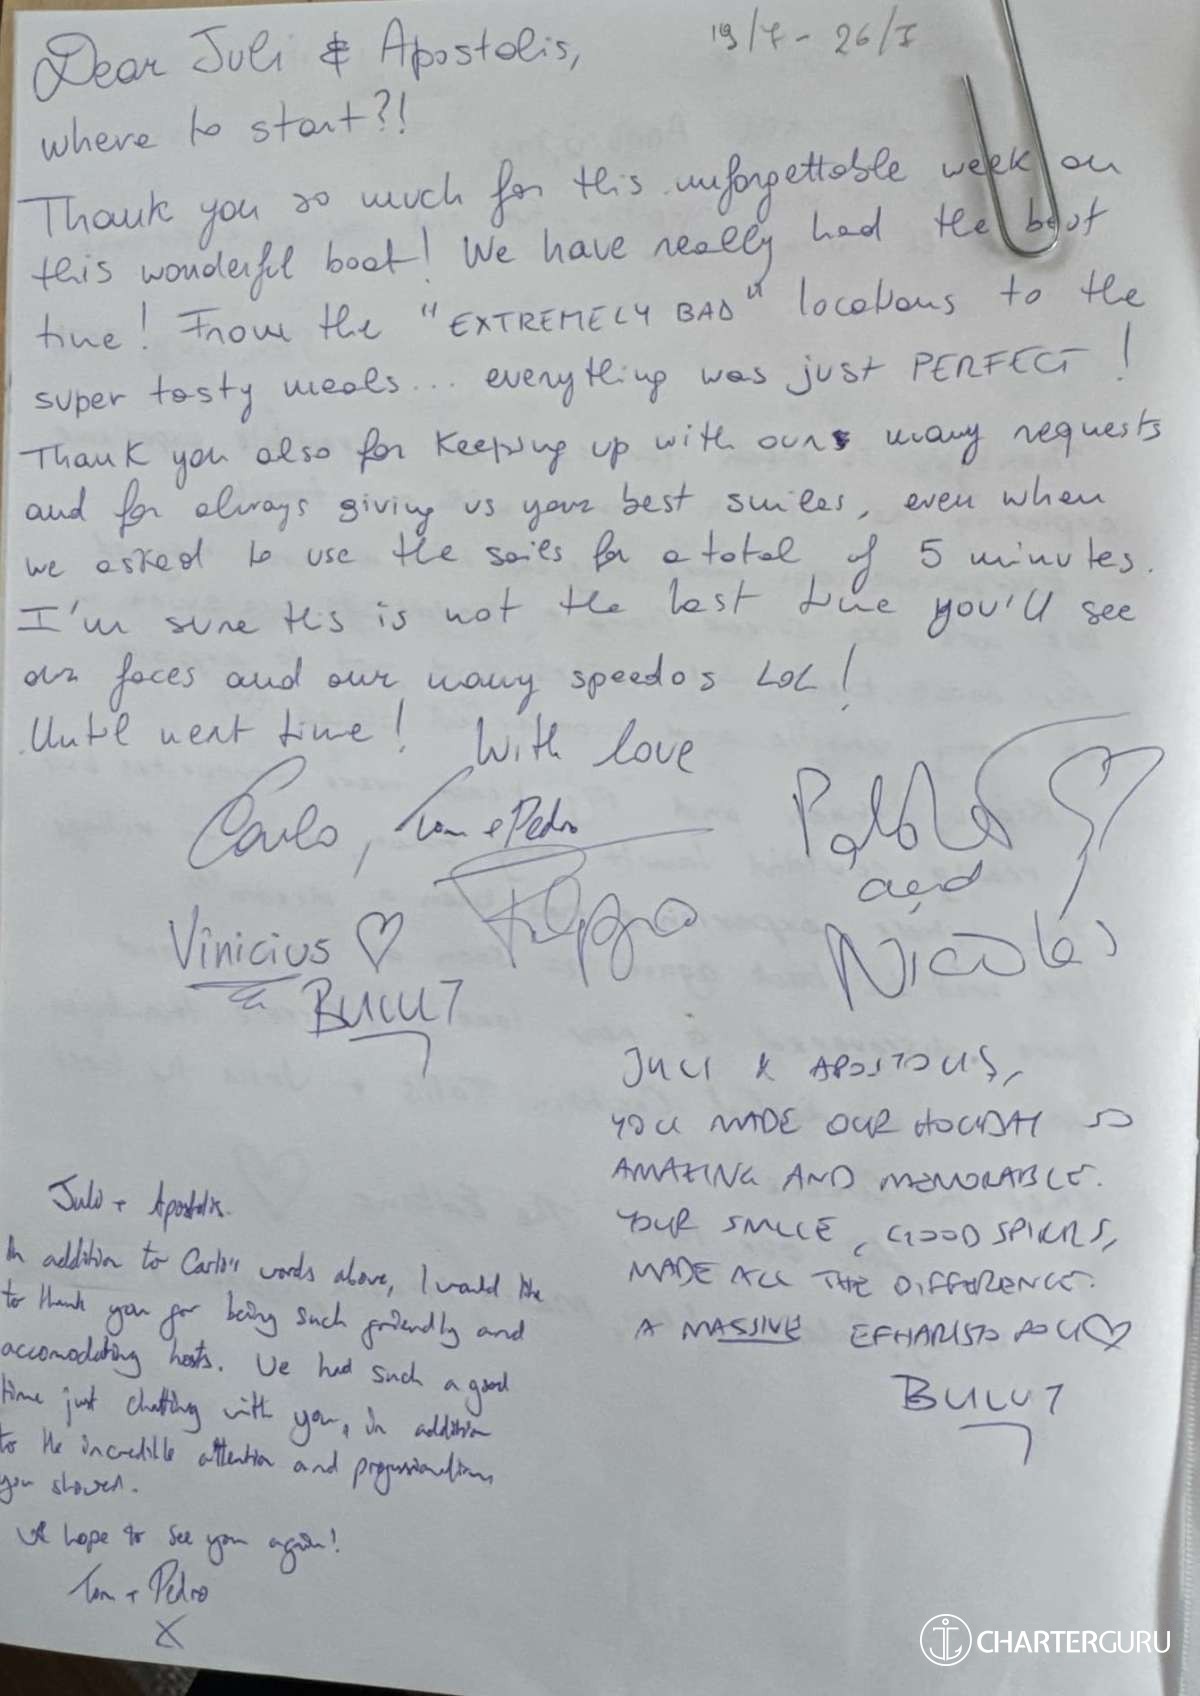 Dear Juli & Apostolis,
19/7 - 26/7
where to start?!
Thank you so much for this unforgettable week on
this wonderful boat! We have really had the best
time! From the "EXTREMELY BAD" locations to the
super tasty meals... everything was just PERFECT!
Thank you also for keeping up with ours many requests
and for always giving us your best smiles, even when
we asked to use the sails for a total of 5 minutes.
I'm sure this is not the last time you'll see
our faces and our many speedos LOL!
Until next time! With love
Carlo, Tom + Pedro
Pablo
and
Nicolas
Vinicius ♡
Filippo
BULUT
JULI & APOSTOLIS,
YOU MADE OUR HOLIDAY SO
AMAZING AND MEMORABLE.
YOUR SMILE, GOOD SPIRITS,
MADE ALL THE DIFFERENCE.
A MASSIVE EFHARISTO POLI ♡
BULUT
Juli + Apostolis.
In addition to Carlo's words above, I would like
to thank you for being such friendly and
accomodating hosts. We had such a good
time just chatting with you, in addition
to the incredible attention and professionalism
you showed.
We hope to see you again!
Tom + Pedro
X
CHARTERGURU